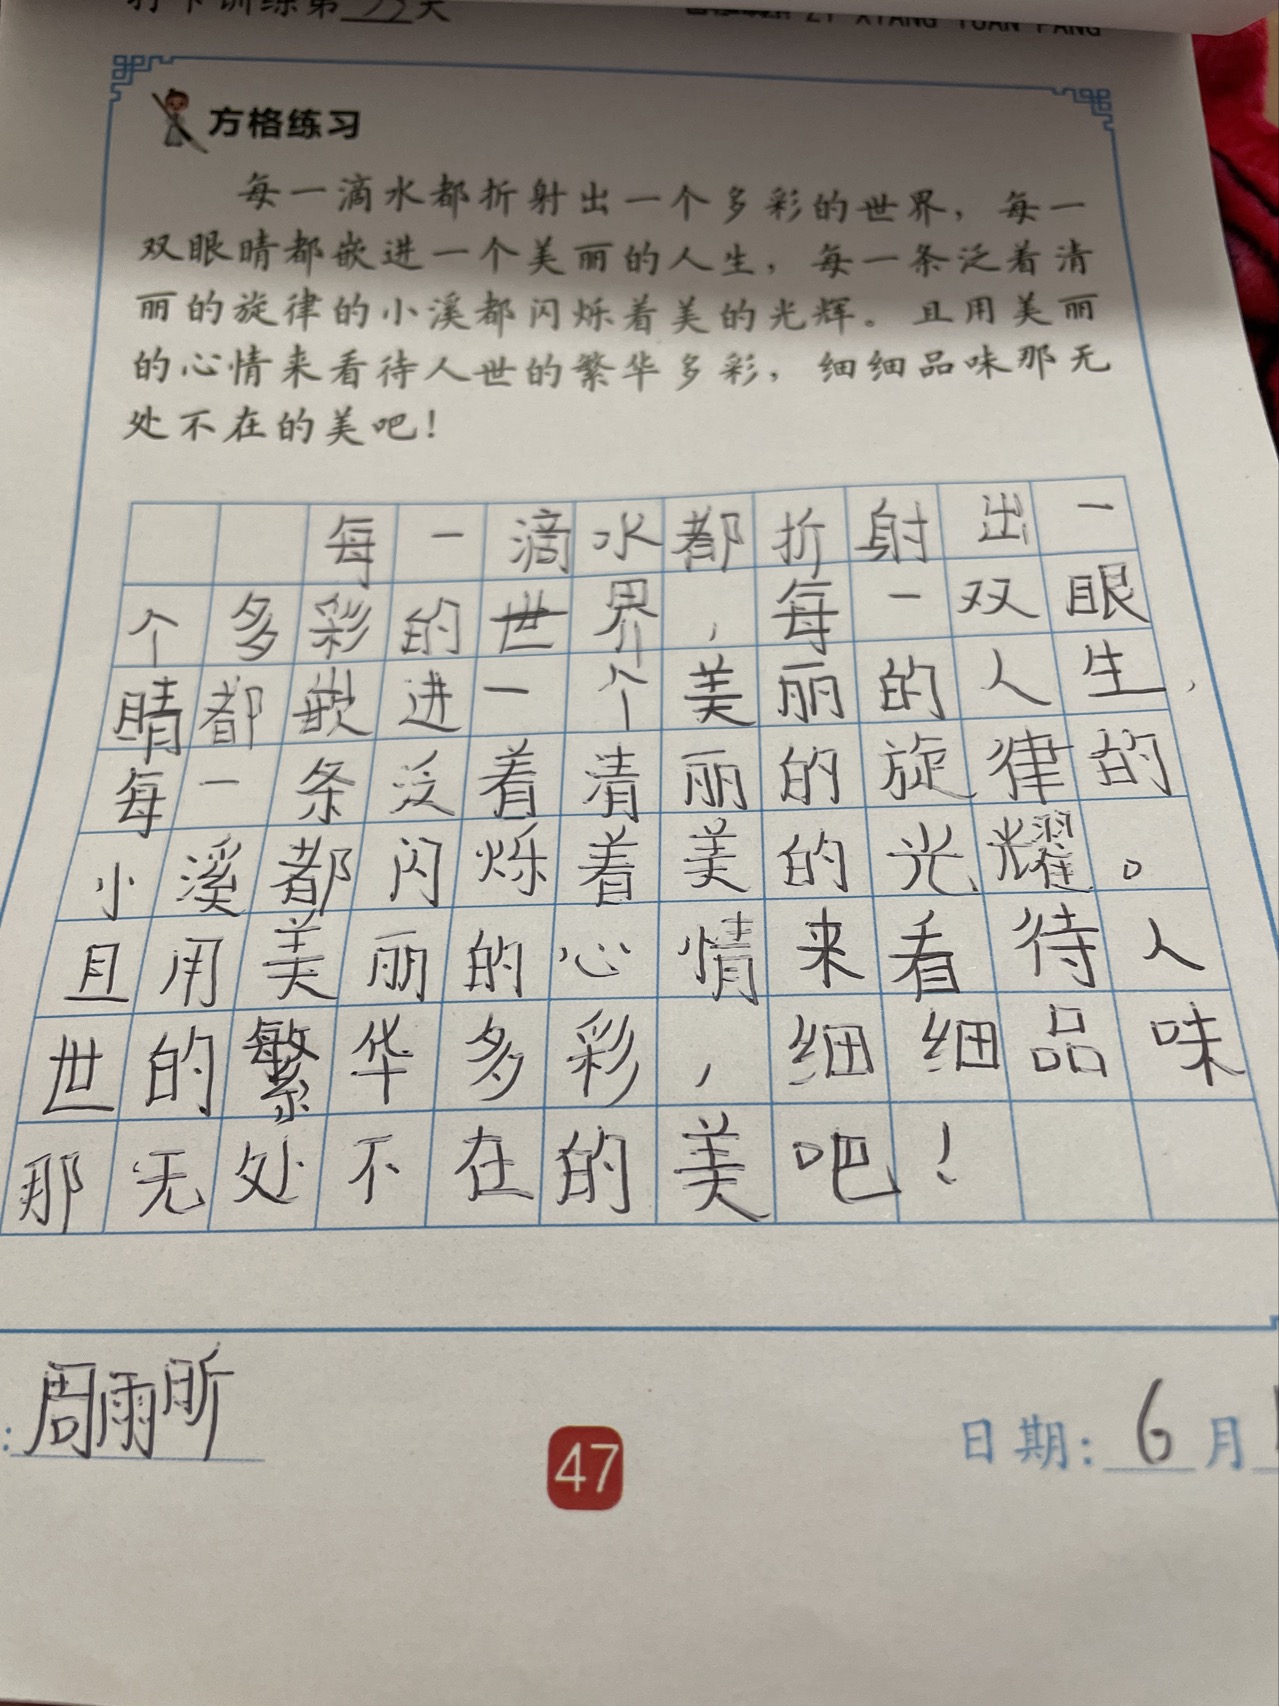 打卡训练第 天
ZI XIANG TUAN FANG
方格练习
每一滴水都折射出一个多彩的世界，每一
双眼睛都嵌进一个美丽的人生，每一条泛着清
丽的旋律的小溪都闪烁着美的光辉。且用美丽
的心情来看待人世的繁华多彩，细细品味那无
处不在的美吧！
每一滴水都折射出一
个多彩的世界，每一双眼
睛都嵌进一个美丽的人生，
每一条泛着清丽的旋律的
小溪都闪烁着美的光耀。
且用美丽的心情来看待人
世的繁华多彩，细细品味
那无处不在的美吧！
：周雨昕
47
日期：6月